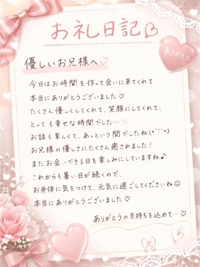 お礼日記
優しいお兄様へ♡
今日はお時間を作って会いに来てくれて
本当にありがとうございました♡
たくさん優しくしてくれて、笑顔にしてくれて、
とっても幸せな時間でした…♡
お話も楽しくて、あっという間でしたね(*ˊˋ*)
お兄様の優しさにたくさん癒されました！
またお会いできる日を楽しみにしていますね♪
これからも暑い日が続くので、
お身体に気をつけて、元気に過ごしてくださいね☺
本当にありがとうございました♡
ありがとうの気持ちを込めて…♡